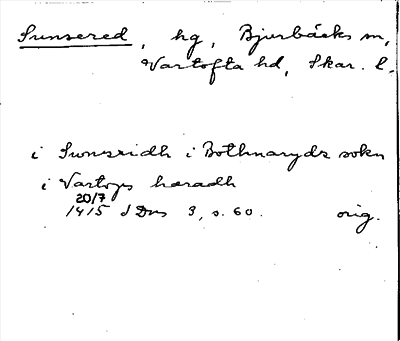 Sunsered, hg, Bjurbäcks sn,
Vartofta hd, Skar. l.
i Swnsridh i Bothnarydz sokn
i Vartops haradh
20/7
1415 SDns 3, s. 60. orig.